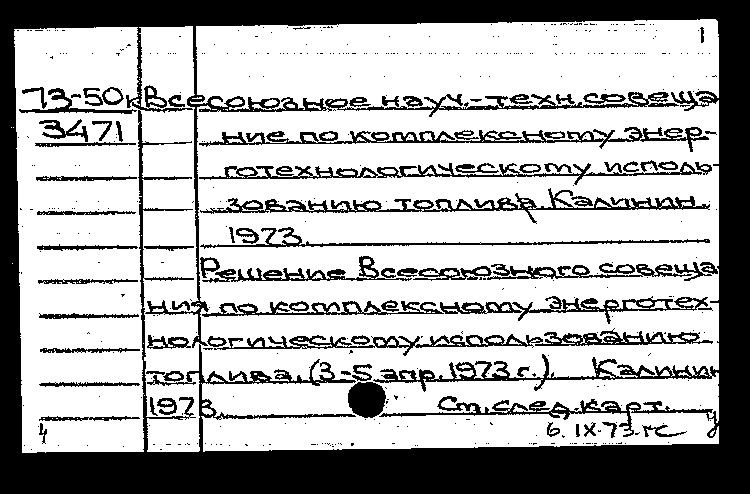 1
73-50к Всесоюзное науч.-техн. совеща
3471 ние по комплексному энер-
готехнологическому исполь-
зованию топлива. Калинин.
1973.
Решение Всесоюзного совеща
ния по комплексному энерготех-
нологическому использованию
топлива. (3-5 апр. 1973 г.). Калинин
1973. См. след. карт.
4 6. IX-73.